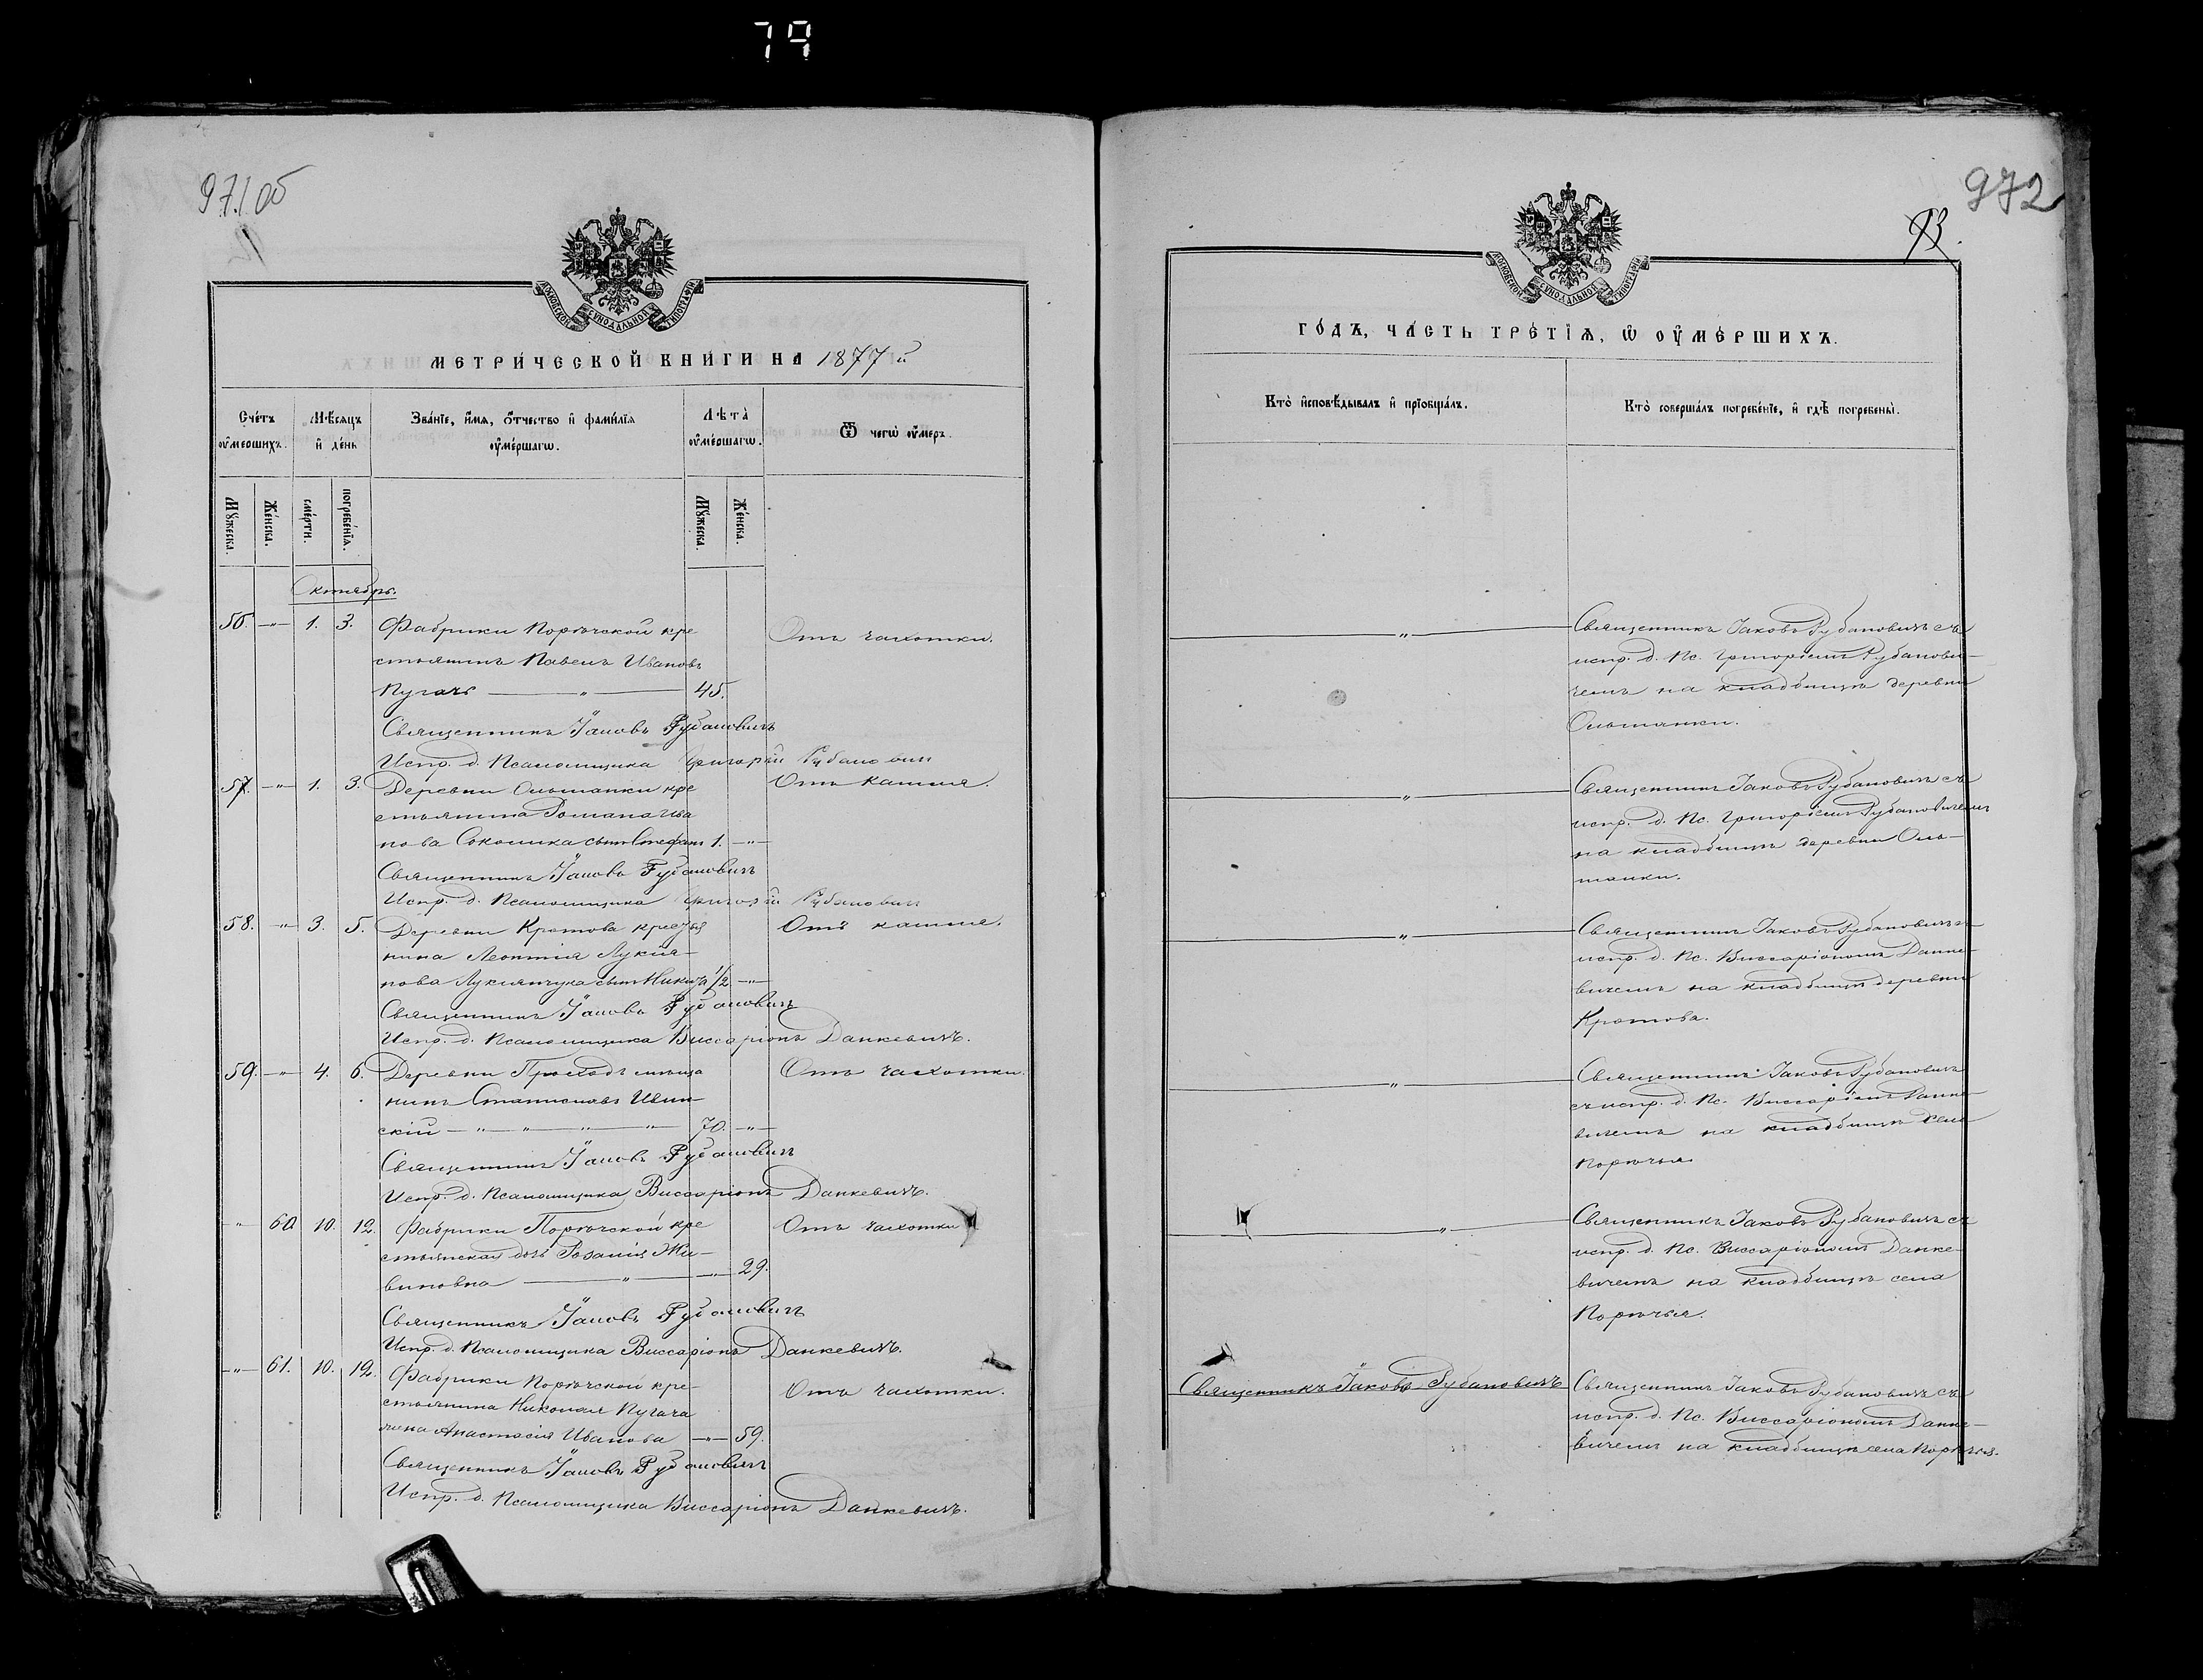 79
971 об
МОСКОВСКОЙ СѴНОДАЛЬНОЙ ТИПОГРАФІИ
МЕТРИ́ЧЕСКОЙ КНИ́ГИ НА 1877 й
Сче́тъ ᲂу҆ме́ршихъ.
Мѣ́сяцъ и҆ де́нь
Зва́нїе, и҆́мѧ, ѻ҆́тчество и҆ фами́лїѧ ᲂу҆ме́ршагѡ.
Лѣта̀ ᲂу҆ме́ршагѡ.
Ѿ чегѡ̀ ᲂу҆́меръ.
Мꙋ́жеска.
Же́нска.
сме́рти.
погребе́нїѧ.
Мꙋ́жеска.
Же́нска.
Октябрь.
56. —"— 1. 3. Фабрики Порѣчской кре Отъ чахотки.
стьянинъ Павелъ Ивановъ
Пугачъ — " — 45.
Священникъ Іаковъ Рубановичъ
Испр. д. Псаломщика Григорій Рубанович
57. —"— 1. 3. Деревни Ольшанки кре Отъ кашля.
стьянина Романа Ива
нова Соколика сынъ Стефанъ 1. —"—
Священникъ Іаковъ Рубановичъ
Испр. д. Псаломщика Григорій Рубанович
58. —"— 3. 5. Деревни Кротова крестья Отъ кашля.
нина Леонтія Лукія-
нова Лукіянчука сынъ Никита 1/2 —"—
Священникъ Іаковъ Рубановичъ
Испр. д. Псаломщика Виссаріонъ Данкевичъ.
59. —"— 4. 6. Деревни мѣща Отъ чахотки.
нинъ Станиславъ
скій — " — " — " — " — 70. —"—
Священникъ Іаковъ Рубановичъ
Испр. д. Псаломщика Виссаріонъ Данкевичъ.
—"— 60 10. 12. Фабрики Порѣчской кре Отъ чахотки
стьянская дочь Розалія
виновна — " — 29.
Священникъ Іаковъ Рубановичъ
Испр. д. Псаломщика Виссаріонъ Данкевичъ.
—"— 61. 10. 12. Фабрики Порѣчской кре- Отъ чахотки.
стьянина Николая Пугача
жена Анастасія Иванова —"— 59.
Священникъ Іаковъ Рубановичъ
Испр. д. Псаломщика Виссаріонъ Данкевичъ.
972
93.
МОСКОВСКОЙ СѴНОДАЛЬНОЙ ТИПОГРАФІИ
ГО́ДЪ, ЧА́СТЬ ТРЕ́ТЇѦ, Ѡ҆ ОУ҆МЕ́РШИХЪ.
Кто̀ и҆сповѣ́дывалъ и҆ прїѡбща́лъ.
Кто̀ соверша́лъ погребе́нїе, и҆ гдѣ̀ погребены̀.
— " — Священникъ Іаковъ Рубановичъ съ
испр. д. Пс. Григоріемъ Рубанови-
чемъ на кладбищѣ деревни
Ольшанки.
— " — Священникъ Іаковъ Рубановичъ съ
испр. д. Пс. Григоріемъ Рубановичемъ
на кладбищѣ деревни Оль-
шанки.
— " — Священникъ Іаковъ Рубановичъ съ
испр. д. Пс. Виссаріономъ Данке-
вичемъ на кладбищѣ деревни
Кротова.
— " — Священникъ Іаковъ Рубановичъ
съ испр. д. Пс. Виссаріономъ Данке-
вичемъ на кладбищѣ села
Порѣчья
— " — Священникъ Іаковъ Рубановичъ съ
испр. д. Пс. Виссаріономъ Данке-
вичемъ на кладбищѣ села
Порѣчья.
Священникъ Іаковъ Рубановичъ Священникъ Іаковъ Рубановичъ съ
испр. д. Пс. Виссаріономъ Данке-
вичемъ на кладбищѣ села Порѣчья.